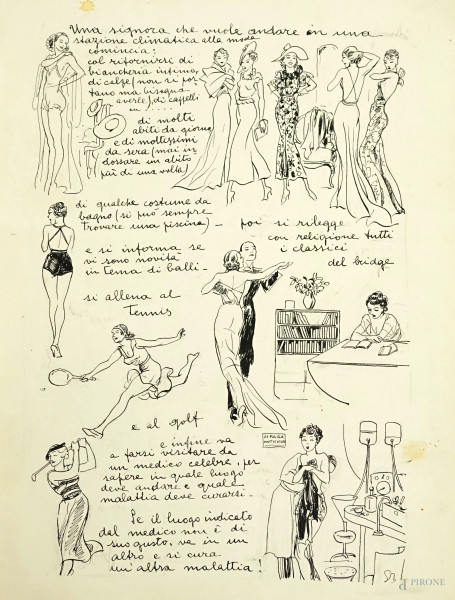 Una signora che vuole andare in una
stazione climatica alla moda
comincia:
col rifornirsi di
biancheria intima,
di calze (non si por
tano ma bisogna
averle), di cappelli
di molti
abiti da giorno
e di moltissimi
da sera (mai in
dossare un abito
più di una volta)
di qualche costume da
bagno (si può sempre
trovare una piscina) –
e si informa se
vi sono novità
in tema di balli –
poi si rilegge
con religione tutti
i classici
del bridge
si allena al
Tennis
e al golf
e infine va
a farsi visitare da
un medico celebre, per
sapere in quale luogo
deve andare e quale
malattia deve curarsi –
Se il luogo indicato
dal medico non è di
suo gusto, va in un
altro e si cura
un'altra malattia!
PIRONE